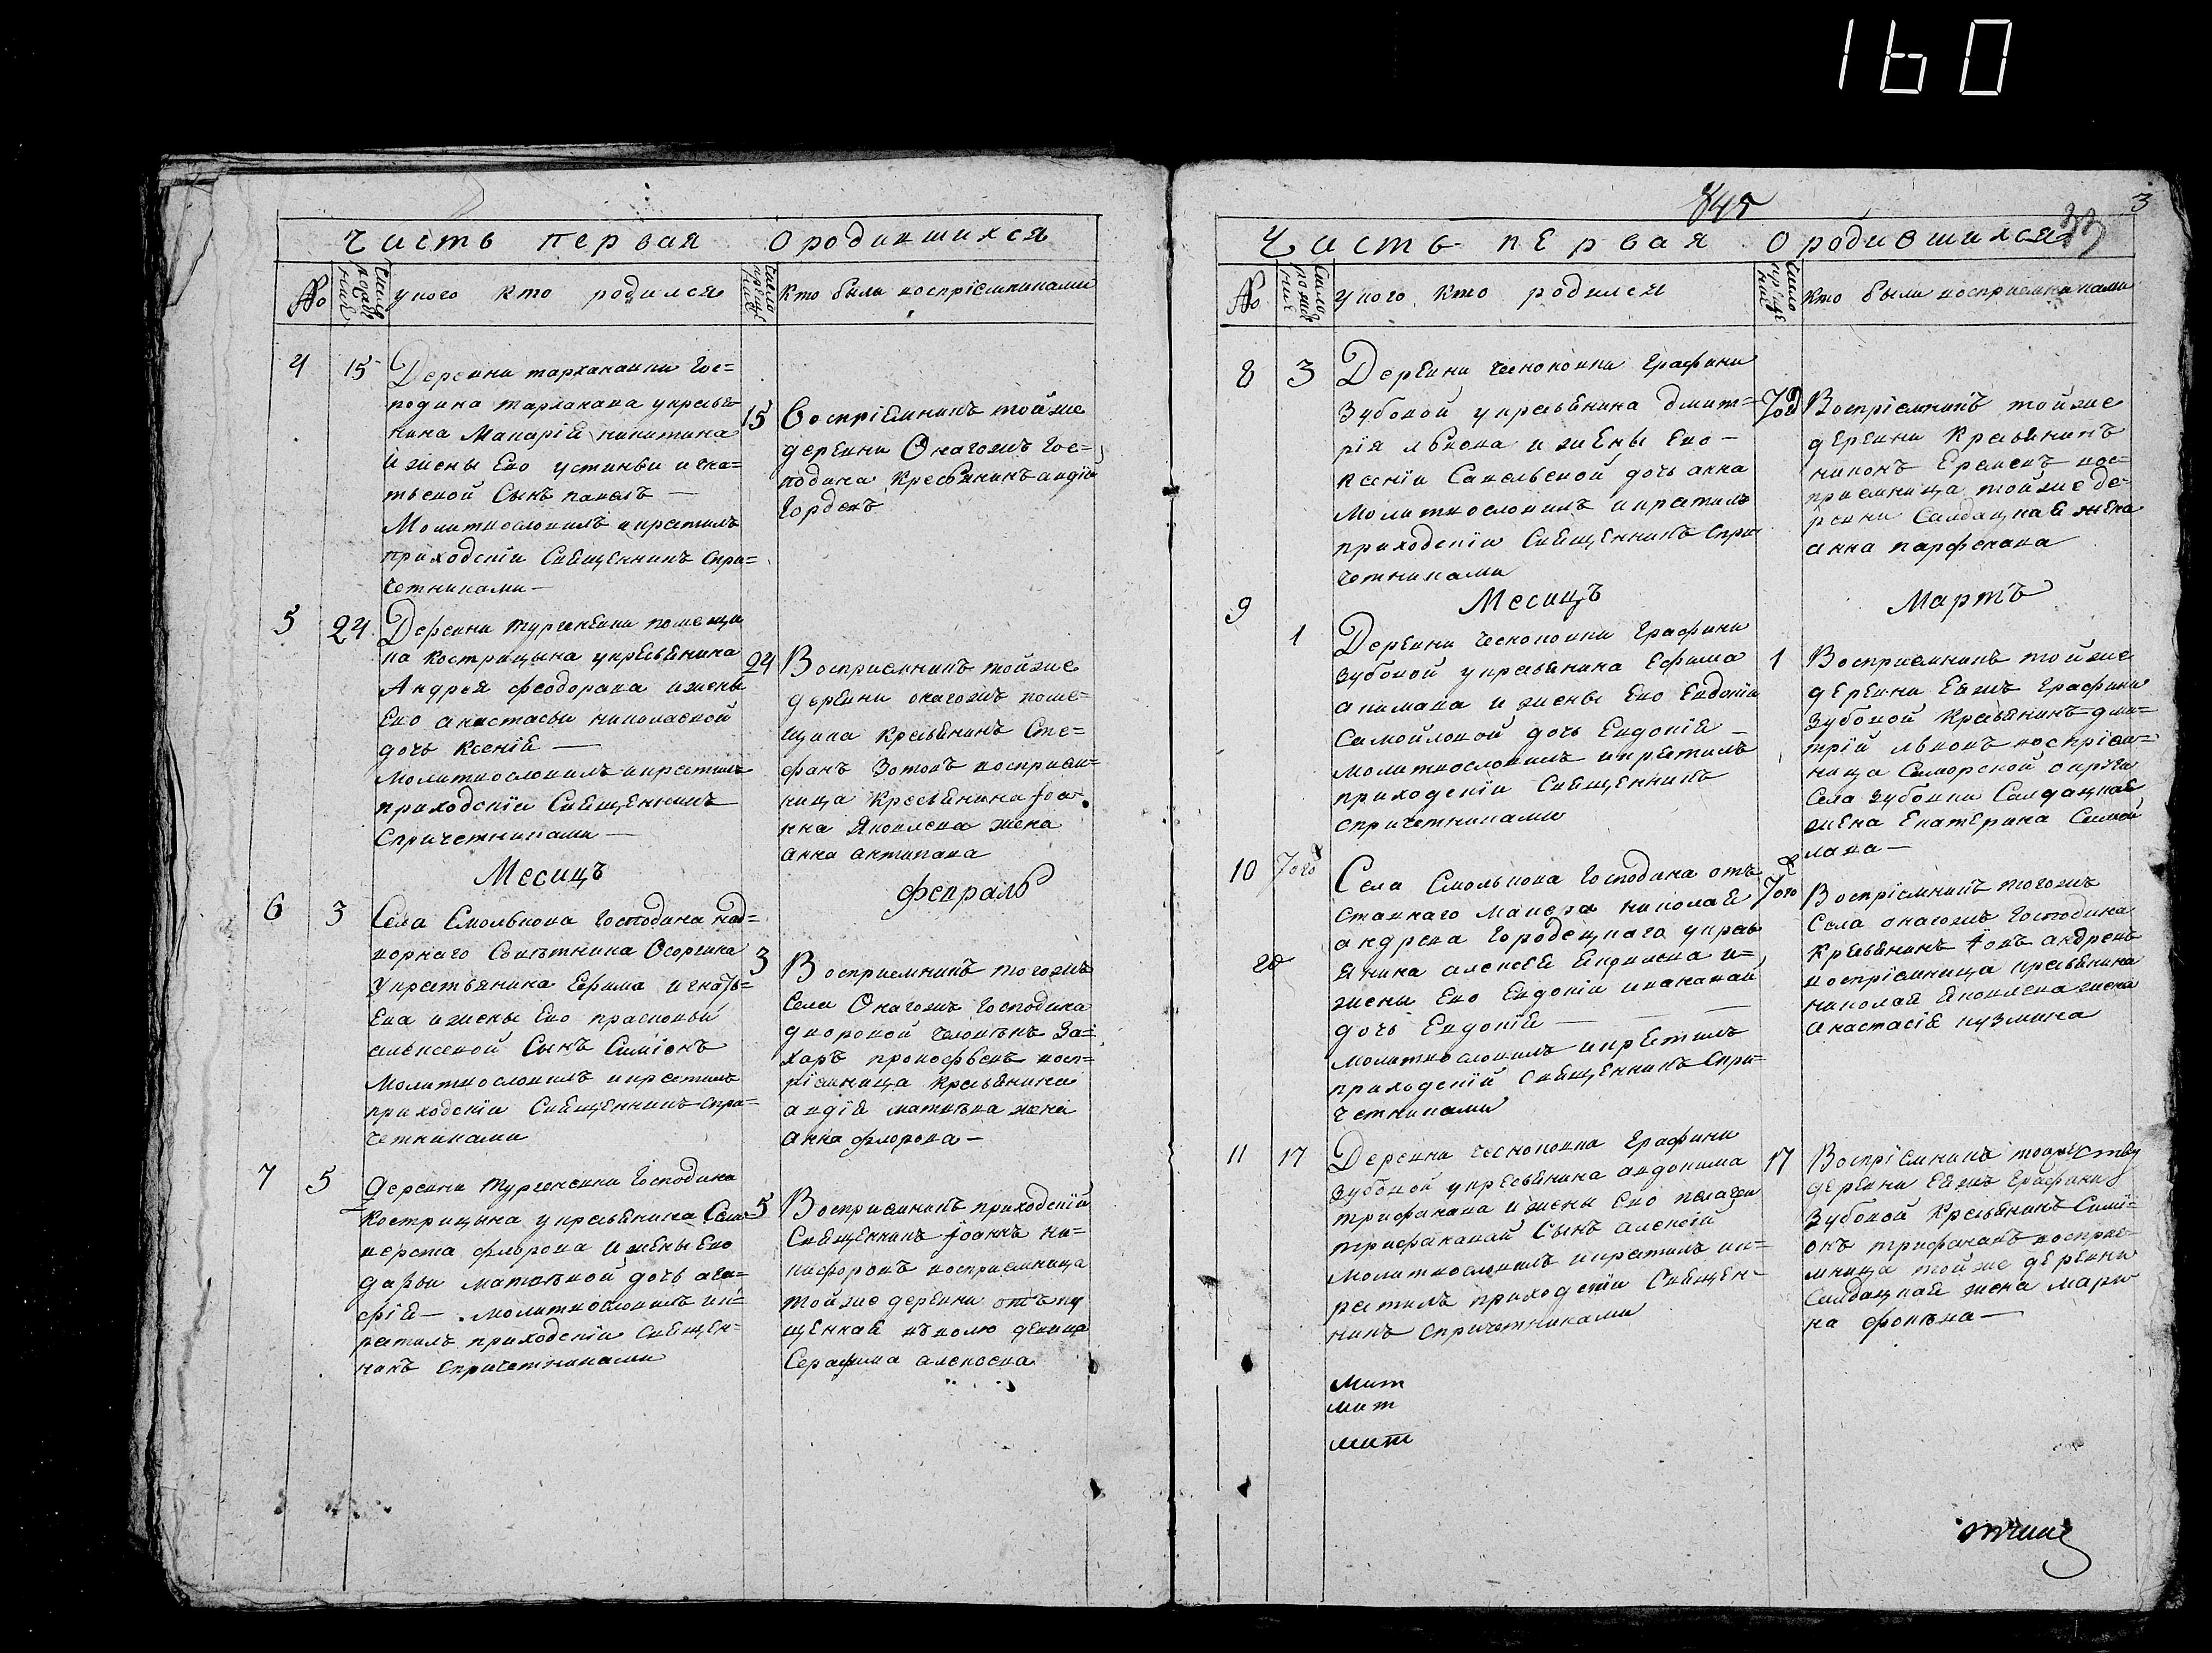 160
845
3
Часть первая о родившихся
№
Число рождения
у кого кто родился
Число крещения
кто были восприемниками
4 15
Деревни тарханавки Гос=
подина тарханава у кресья
нина Макарiя никитина
и жены Ево устиньи игна=
тьевой Сынъ павелъ —
Молитвословилъ и крстилъ
приходскiи Священникъ спри=
четниками —
15
Воспрiемникъ той же
деревни Онагожъ Гос=
подина Кресьянинъ авдiй
Гордевъ
5 24
Деревни тургеневки помещи
ка Кострицына у кресьянина
Андрея феодорава и жены
Ево анастасьи николаевой
дочь Ксенiя —
молитвословилъ и крстилъ
приходскiи Священникъ
спричетниками —
24
Восприемникъ той же
деревни онагожъ поме=
щика Кресьянинъ Сте=
фанъ Зотовъ восприем=
ница Кресьянина Iоа
нна Яковлева жена
анна антипава
Месицъ февраль
6 3
Села Смолькова Господина над=
ворнаго Советника Осоргина
У кретьянина Ефима игнать=
Ева и жены Ево прасковьи
алексевой Сынъ Симiонъ
Молитвословилъ и крстилъ
приходскiи Священникъ спри=
четниками
3
Восприемникъ тогожъ
Села Онагожъ Господина
дворовой человекъ За=
харъ прокофьевъ восп=
рiемница Кресьянина
авдiя матвева жена
анна флорова —
7 5
Деревни тургеневки Господина
Кострицына у кресьянина Сели
верста флорова и жены Ево
дарьи матвевной дочь ага=
фiя — молитвословилъ и к=
рстилъ приходскiи Священ=
никъ спричетниками
5
Восприемникъ приходскiй
Священникъ Iоаннъ ни=
кифоровъ восприемница
той же деревни отъпу
щенная на волю девица
Серафима алексевна
Часть первая о родившихся
№
Число рождения
у кого кто родился
Число крещения
кто были восприемниками
8 3
Деревни чесноковки Графини
Зубовой у кресьянина дмит=
рiя львова и жены Ево —
ксенiи Савельевой дочь анна
Молитвословилъ и крстилъ
приходскiи Священникъ спри
четниками
Воспрiемникъ той же
деревни Кресьянинъ
никонъ Еремевъ вос=
приемница той же де=
ревни Салдацкая жена
анна парфенава
Месицъ Мартъ
9 1
Деревни чесноковки Графини
Зубовой у кресьянина Ефима
акимава и жены Ево Евдокiи
Самойловой дочь Евдокiя —
молитвословилъ и крстилъ
приходскiи Священникъ
спричетниками
1
Восприемникъ той же
деревни Еяжъ Графини
Зубовой Кресьянинъ дми=
трiй львовъ воспрiем=
ница Самарской округи
Села зубовки Салдацкая
жена Екатерина Самой
лава —
10 7ого
Села Смолькова Господина отъ
ставнаго Маиора николая
андрева Городецкаго у крсь
янина алексея
жены Ево Евдокiи
дочь Евдокiя —
молитвословилъ и крстилъ
приходскiй священникъ спри=
четниками
20
7ого
Воспрiемникъ тогожъ
Села онагожъ Господина
Кресьянинъ Iовъ андревъ
воспрiемница кресьянина
николая Яковлева жена
анастасiя кузмина
11 17
Деревни чесноковки Графини
Зубовой у кресьянина авдокима
трифанава и жены Ево пелагеи
Сынъ алексiй
молитвословилъ и крстилъ
приходскiи Священ=
никъ спричетниками
17
Воспрiемникъ
деревни Еяжъ Графини
Зубовой Кресьянинъ Сими=
онъ трифанавъ восприе=
мница той же деревни
Салдацкая жена мари
на фокъна —
мит
мит
мит